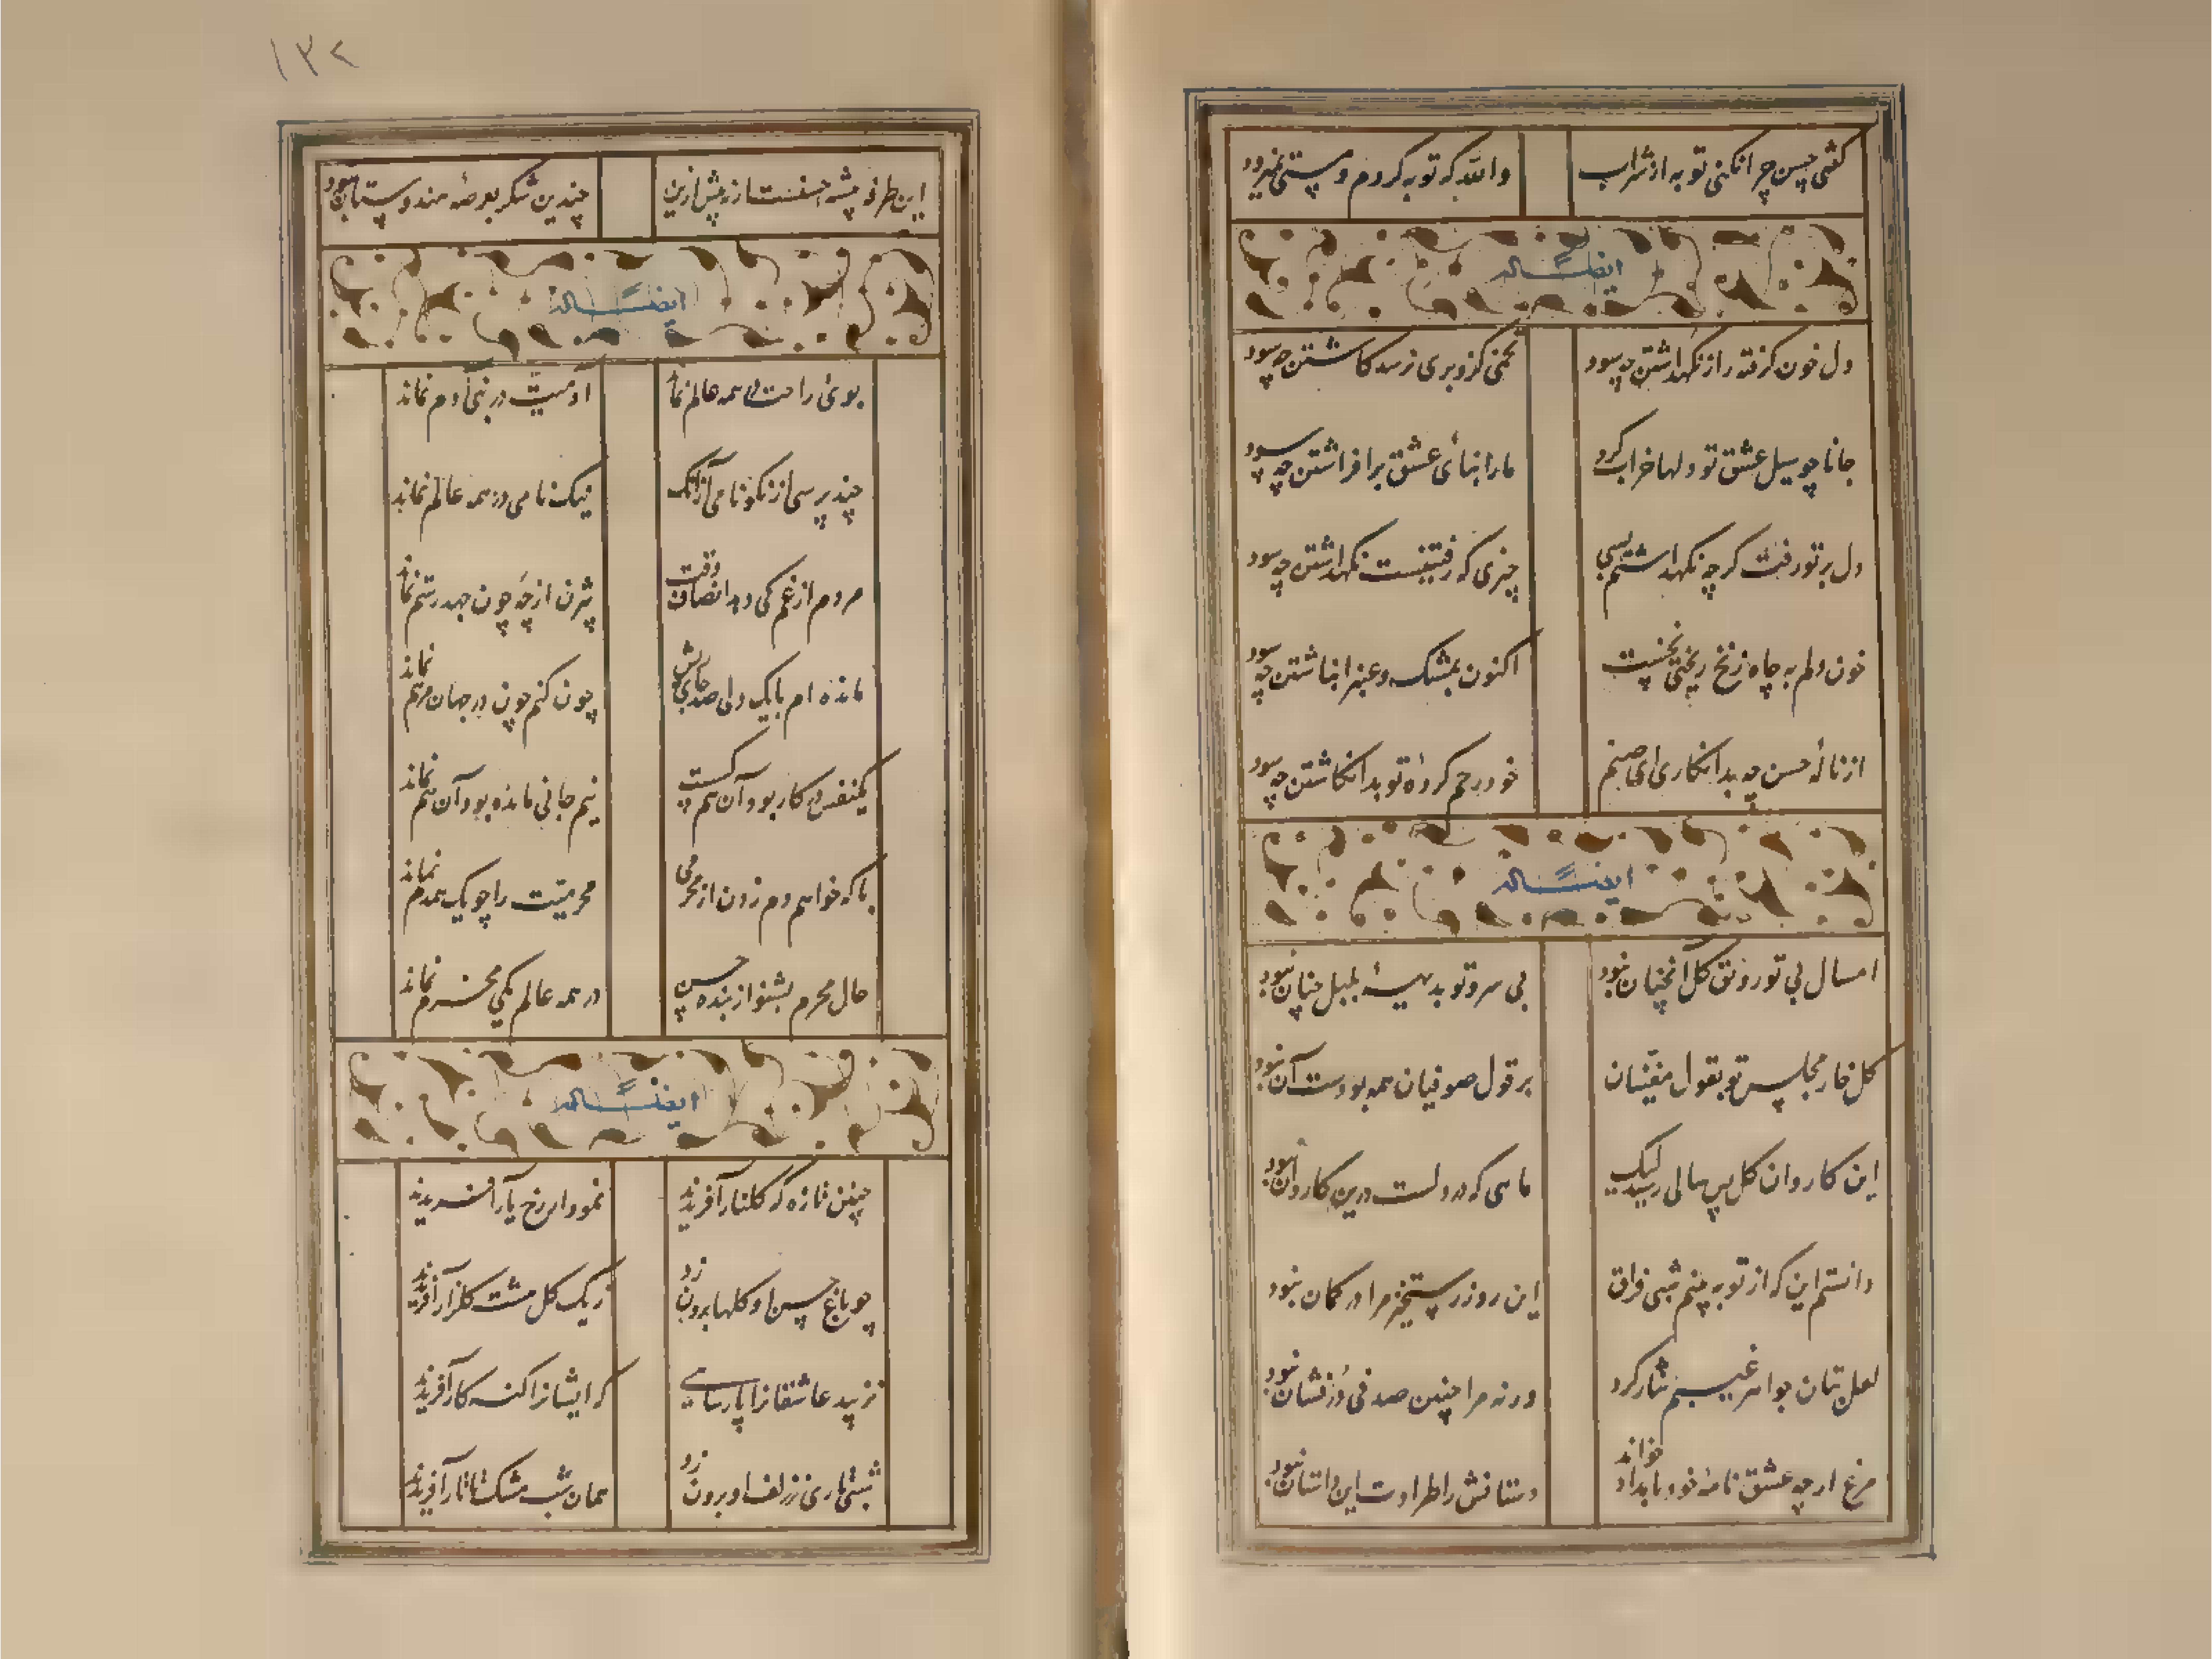 گفتی حسن چرا نکنی توبه از شراب والله که توبه کردم و مستی نمیرود
ایضاً له
دل خون گرفته را ز نگهداشتن چه سود تخمی کزو بری نرسد کاشتن چه سود
جانا چو سیل عشق تو دلها خراب کرد ما را بنای عشق برافراشتن چه سود
دل بر تو رفت گرچه نگهداشتم بسی چیزی که رفتنیست نگهداشتن چه سود
خون دلم به چاه زنخ ریختی نخست اکنون بمشک و عنبر انباشتن چه سود
از نالهٔ حسن چه بد انگاری ای صنم خود رحم کردهٔ تو بد انگاشتن چه سود
ایضاً له
امسال بی تو رونق گل آنچنان نبود بی سرو تو بدیههٔ بلبل چنان نبود
گل خار مجلس تو بقول مغنیان بر قول صوفیان همه بودست آن نبود
این کاروان گل پس سالی رسید لیک ماهی که در دلست درین کاروان نبود
دانستم این که از تو به بینم شبی فراق این روز رستخیز مرا در گمان نبود
لعل بتان جواهر غیبم نثار کرد ورنه مرا چنین صدفی درفشان نبود
مرغ ارچه عشق نامهٔ خود بامداد خواند دستانش را طراوت این داستان نبود
۱۳۲
این طرفه پشه حسنت از پیش ازین چندین شکر بعرصهٔ هندوستان نبود
ایضاً له
بوی راحت در همه عالم نماند آدمیت در بنی آدم نماند
چند پرسی از نکونامی آز آنک نیک نامی در همه عالم نماند
مردم از غم کی دهد انصاف وقت بیژن از چه چون جهد رستم نماند
مانده ام با یک دلی صد جای ریش چون کنم چون در جهان مرهم نماند
یکنفس در کار بود آن هم گسست نیم جانی مانده بود آن هم نماند
با که خواهم دم زدن از محرمی محرمیت را چو یک همدم نماند
حال محرم بشنو از بنده حسن در همه عالم یکی محرم نماند
ایضاً له
چنین تازه که گلنار آفریدند نمودار رخ یار آفریدند
چو باغ حسن او گلها برون زد ز یک گل مشت گلزار آفریدند
نزیبد عاشقانرا پارسایی که ایشانرا گنه کار آفریدند
شبی تاری ز زلف او برون زد همان شب مشک تاتار آفریدند